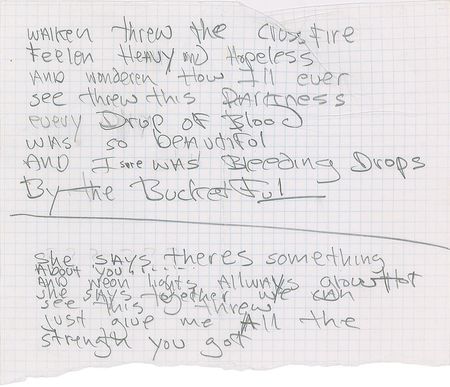 WALKEN threw the CrossFire
Feelen HEAVY AND Hopeless
AND wonderen How I'll ever
see threw this DARKNESS
every Drop of Blood
WAS so beautiful
AND I sure WAS Bleeding Drops
By the BucketFul
she SAYS theres something
About you.....
AND Neon lights Allways glow Hot
she SAYS together we can
see this threw
Just give me All the
strength you got